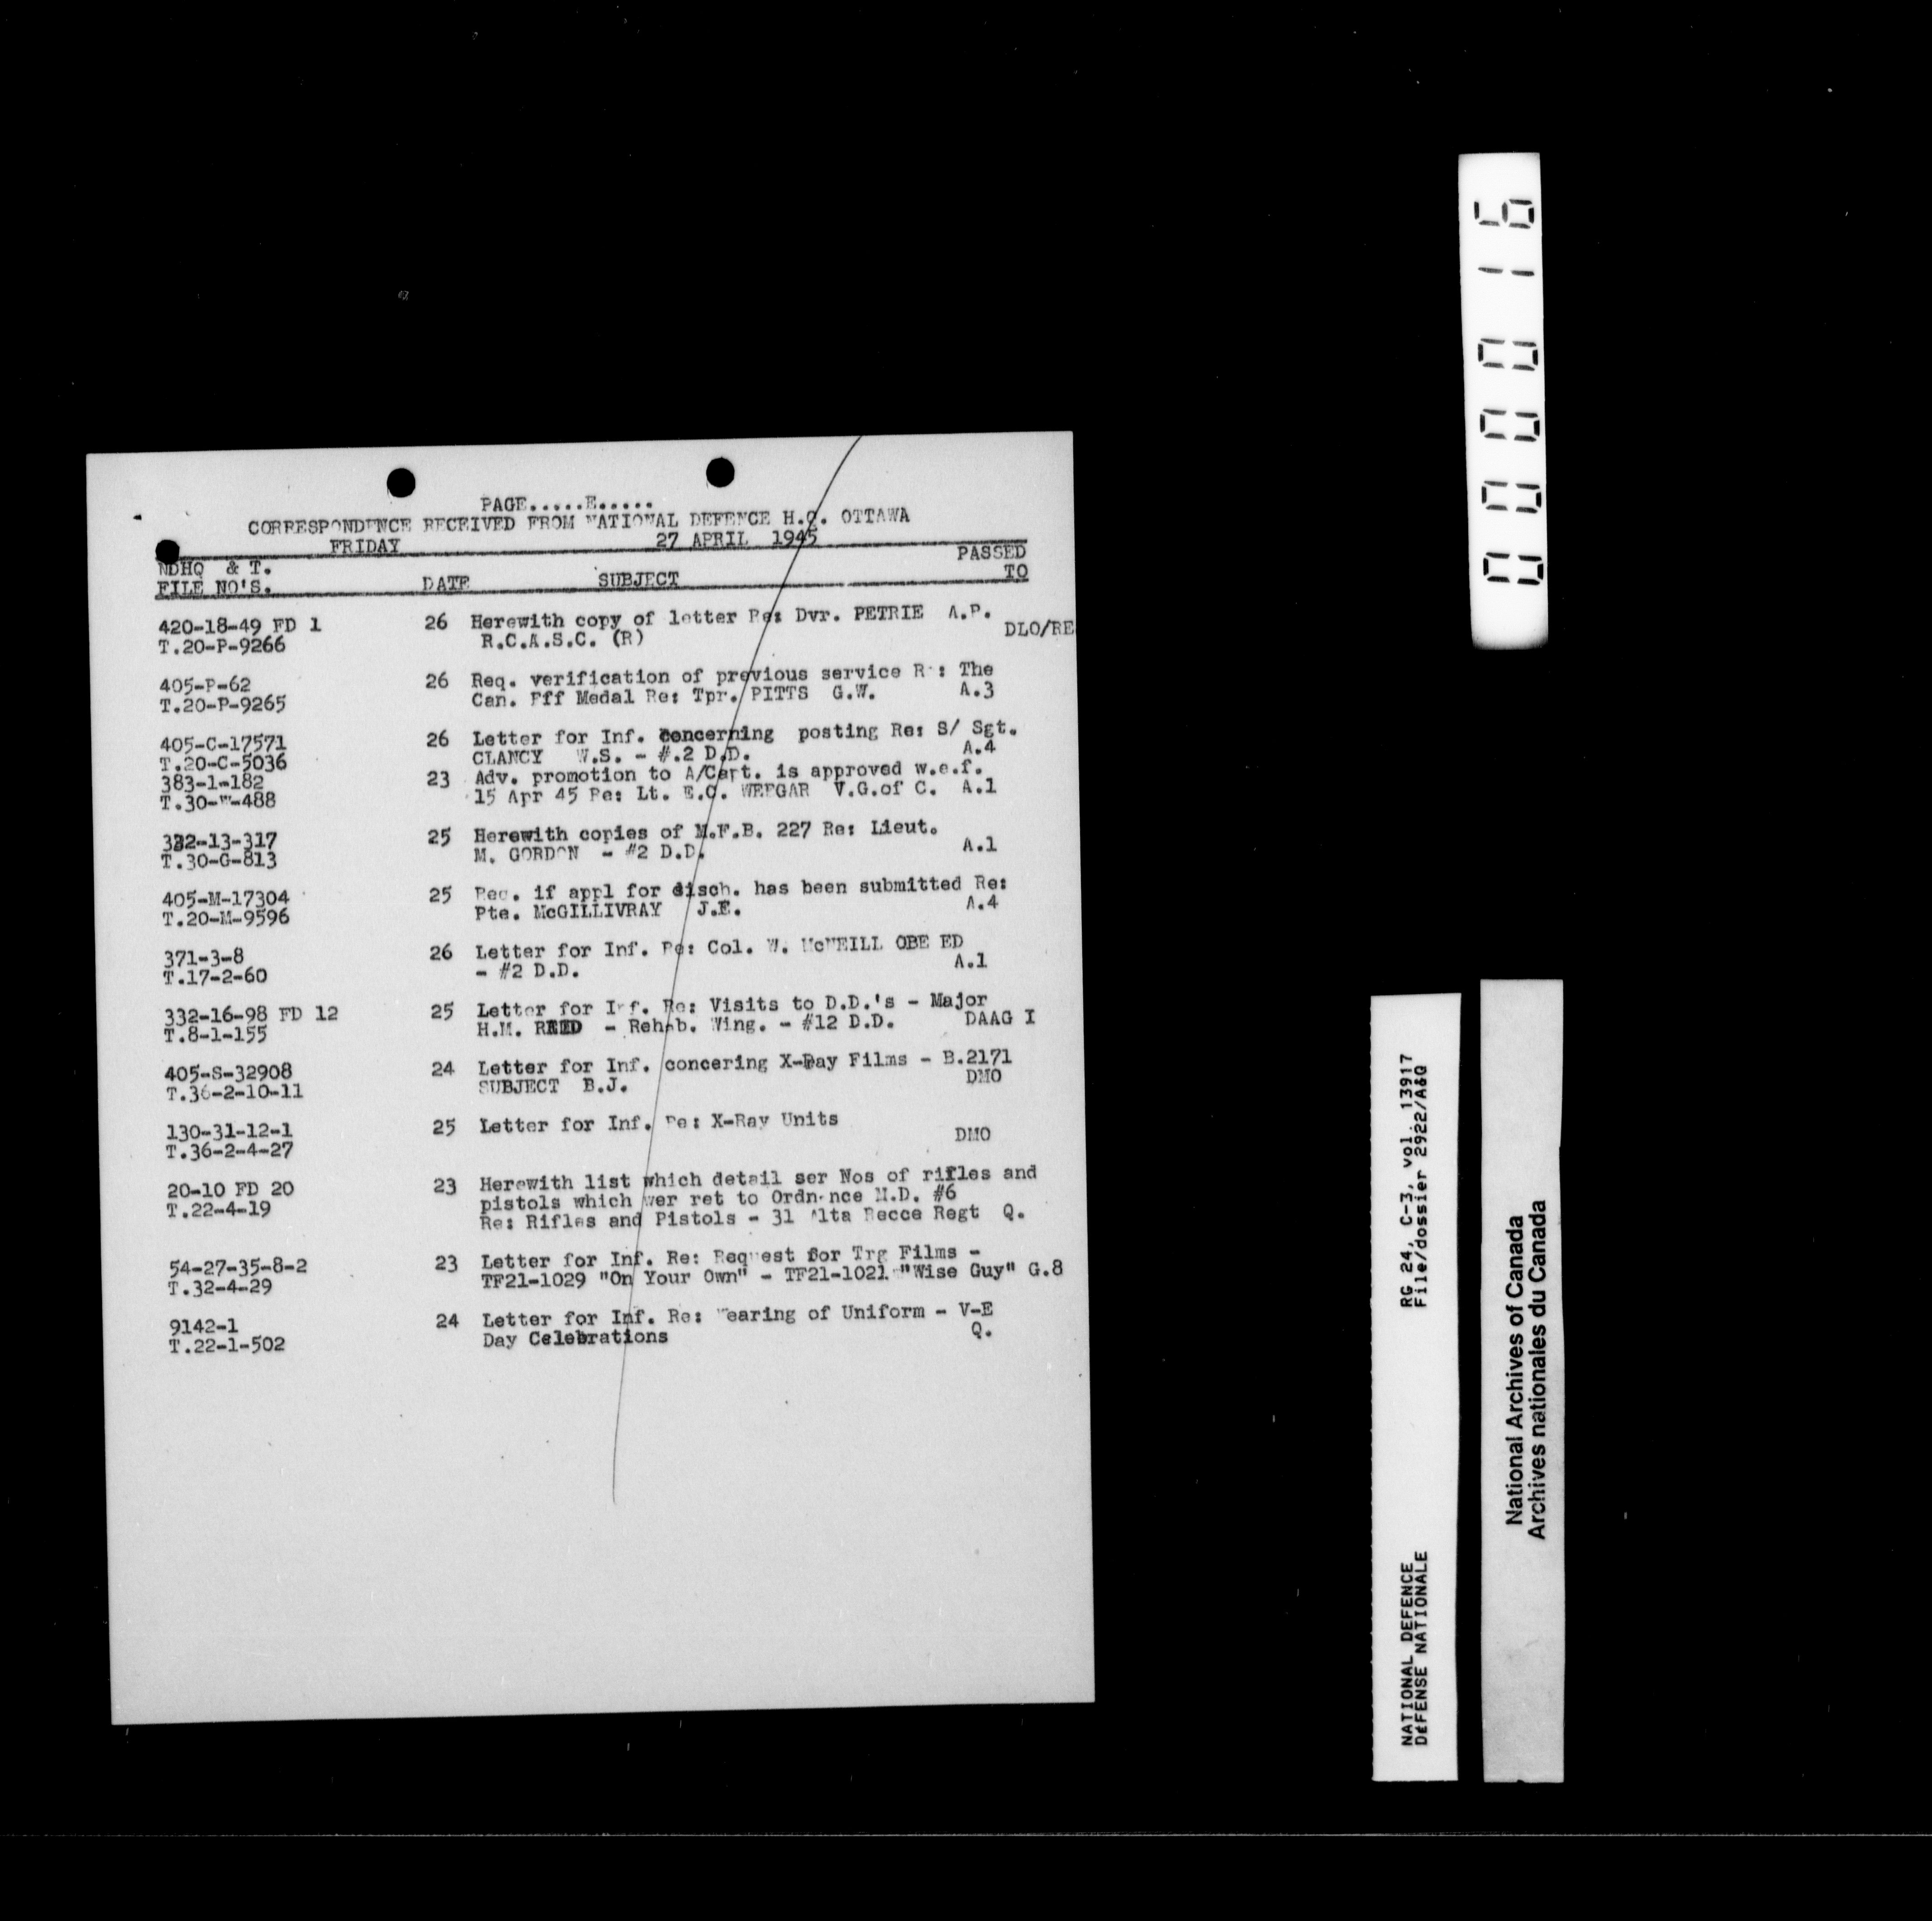 PAGE.....E.....
CORRESPONDENCE RECEIVED FROM NATIONAL DEFENCE H.Q. OTTAWA
FRIDAY 27 APRIL 1945
NDHQ & T. PASSED
FILE NO'S. DATE SUBJECT TO
420-18-49 FD 1 26 Herewith copy of letter Re: Dvr. PETRIE A.P.
T.20-P-9266 R.C.A.S.C. (R) DLO/RE
405-P-62 26 Req. verification of previous service Re: The
T.20-P-9265 Can. Eff Medal Re: Tpr. PITTS G.W. A.3
405-C-17571 26 Letter for Inf. concerning posting Re: S/ Sgt.
T.20-C-5036 CLANCY W.S. - #.2 D.D. A.4
383-1-182 23 Adv. promotion to A/Capt. is approved w.e.f.
T.30-W-488 15 Apr 45 Re: Lt. E.C. V.G.of C. A.1
332-13-317 25 Herewith copies of M.F.B. 227 Re: Lieut.
T.30-G-813 M. GORDON - #2 D.D. A.1
405-M-17304 25 Req. if appl for disch. has been submitted Re:
T.20-M-9596 Pte. McGILLIVRAY J.E. A.4
371-3-8 26 Letter for Inf. Re: Col. W. McNEILL OBE ED
T.17-2-60 - #2 D.D. A.1
332-16-98 FD 12 25 Letter for Inf. Re: Visits to D.D.'s - Major
T.8-1-155 H.M. REED - Rehab. Wing. - #12 D.D. DAAG I
405-S-32908 24 Letter for Inf. concering X-Ray Films - B.2171
T.36-2-10-11 SUBJECT B.J. DMO
130-31-12-1 25 Letter for Inf. Re: X-Ray Units
T.36-2-4-27 DMO
20-10 FD 20 23 Herewith list which detail ser Nos of rifles and
T.22-4-19 pistols which wer ret to Ordnance M.D. #6
Re: Rifles and Pistols - 31 Alta Recce Regt Q.
54-27-35-8-2 23 Letter for Inf. Re: Request for Trg Films -
T.32-4-29 TF21-1029 "On Your Own" - TF21-1021 "Wise Guy" G.8
9142-1 24 Letter for Inf. Re: Wearing of Uniform - V-E
T.22-1-502 Day Celebrations Q.
000016
NATIONAL DEFENCE RG 24, C-3, vol. 13917
DÉFENSE NATIONALE File/dossier 2922/A&Q
National Archives of Canada
Archives nationales du Canada